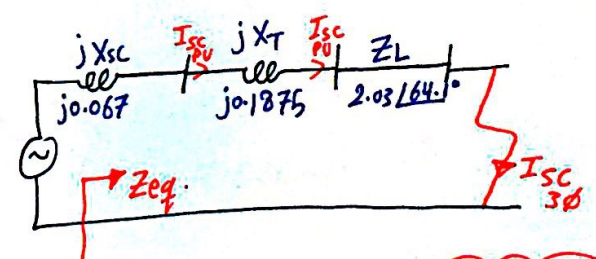 jXsc
Isc
PU
jXT
Isc
PU
ZL
j0.067
j0.1875
2.03∠64.1°
~
Zeq.
Isc
3Ø